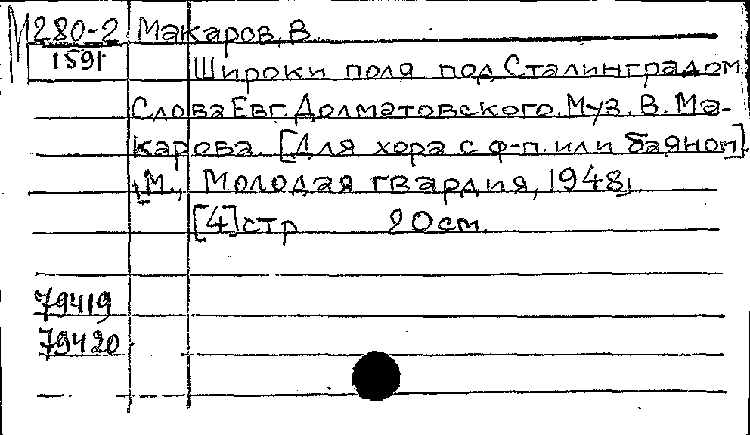 М 280-2 Макаров, В.
1591
Широки поля под Сталинградом
Слова Евг. Долматовского. Муз. В. Ма-
карова. [Для хора с ф-п. или баяном].
[М., Молодая гвардия, 1948]
[4] стр 20 см.
79419
79420